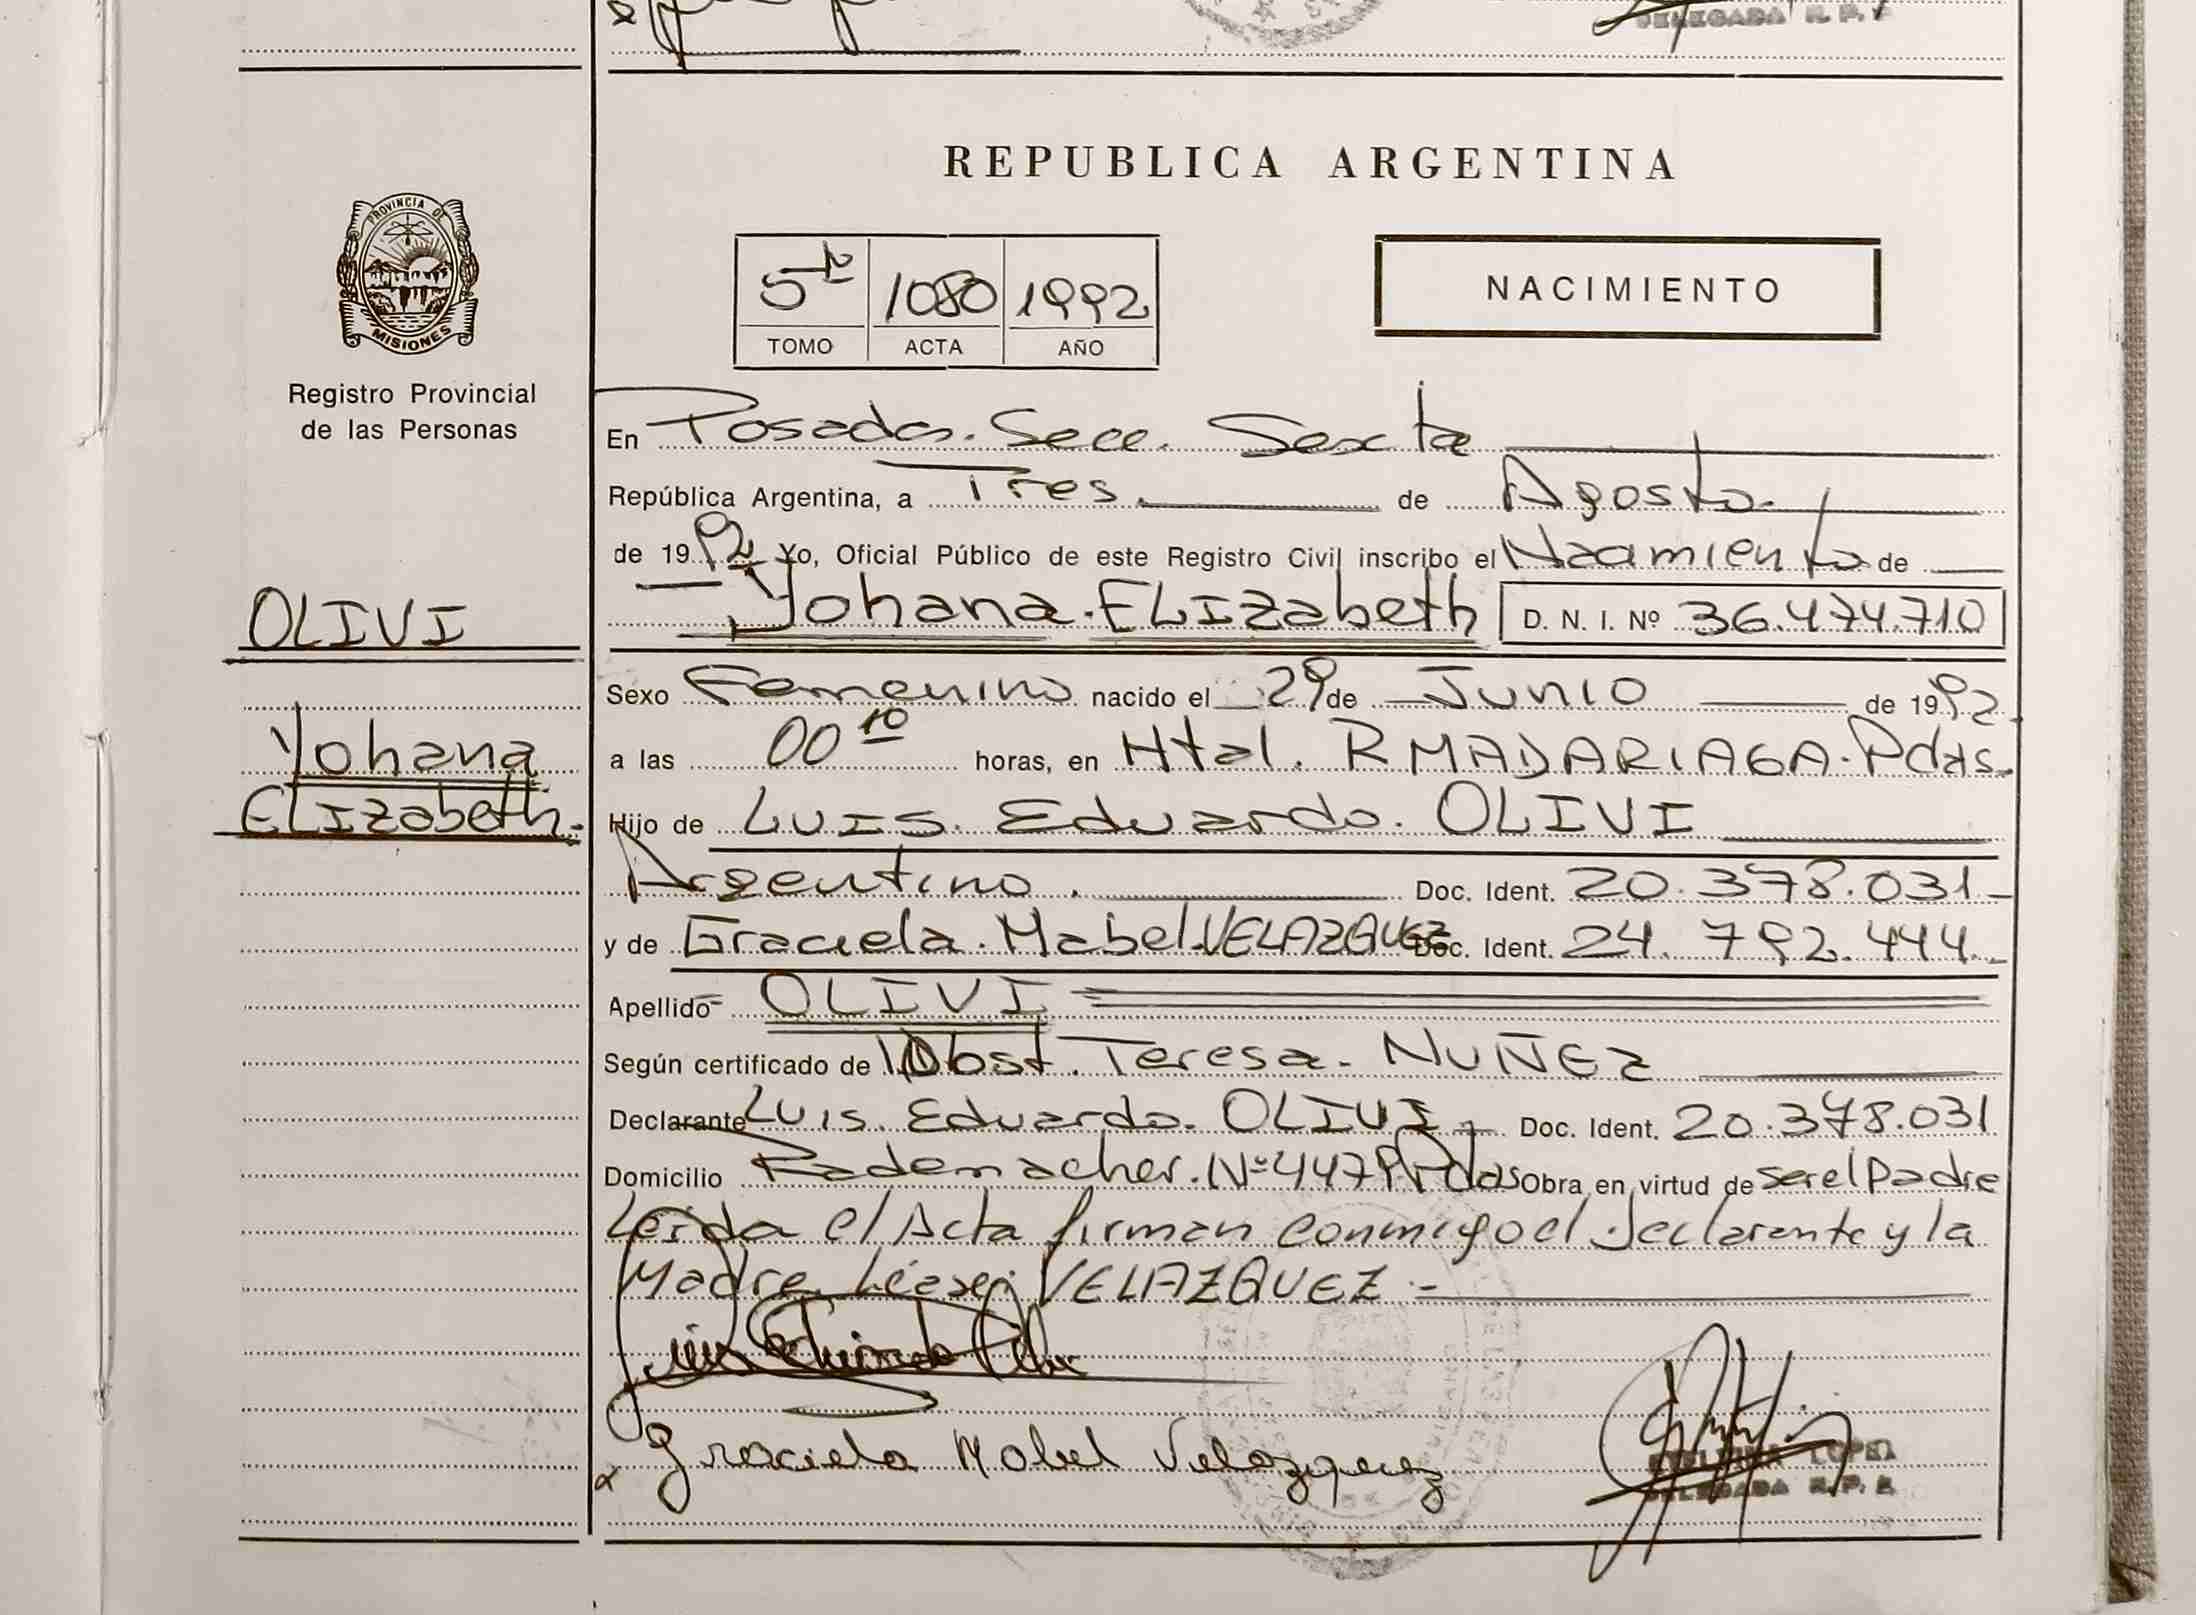 DELEGADA R. P.
REPUBLICA ARGENTINA
PROVINCIA DE
MISIONES
Registro Provincial
de las Personas
5to 1080 1992
TOMO ACTA AÑO
NACIMIENTO
En Posadas. Secc. Sexta
República Argentina, a Tres de Agosto.
de 1992 Yo, Oficial Público de este Registro Civil inscribo el Nacimiento de
Yohana. ELIzabeth D. N. I. Nº 36.474.710
OLIVI
Yohana
ELIzabeth.
Sexo Femenino nacido el 29 de Junio de 1992
a las 00 10 horas, en Htal. R MADARIAGA. Pdas.
Hijo de Luis. Eduardo. OLIVI
Argentino. Doc. Ident. 20.378.031
y de Graciela. Mabel. VELAZQUEZ Doc. Ident. 24.792.444.
Apellido OLIVI
Según certificado de Obst. Teresa. NUÑEZ
Declarante Luis. Eduardo. OLIVI Doc. Ident. 20.378.031
Domicilio Rademacher. Nº 447 Pdas Obra en virtud de ser el Padre
Leida el Acta firman conmigo el declarante y la
Madre. Léase: VELAZQUEZ.-
Graciela Mabel Velazquez
LOPEZ
DELEGADA R. P.